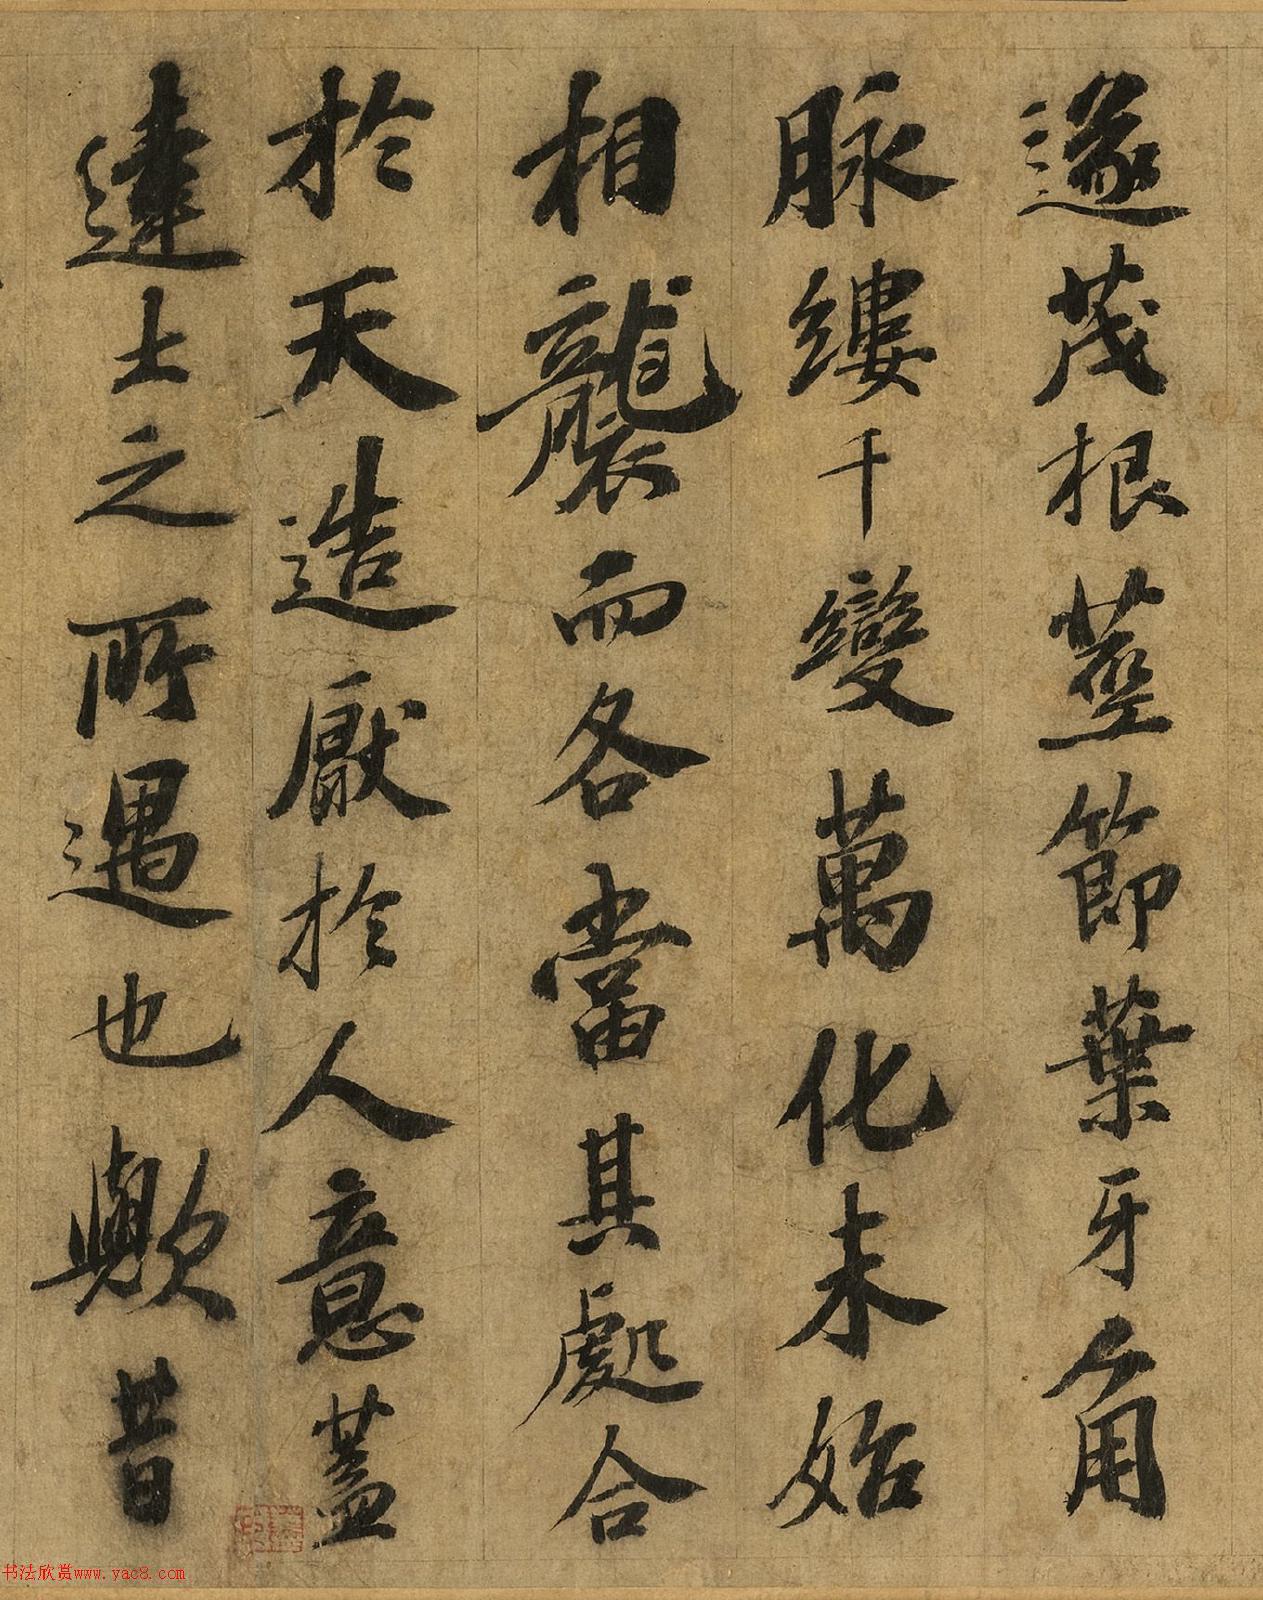 遂茂根莖節葉牙角
脉縷千變萬化未始
相襲而各當其處合
於天造厭於人意蓋
達士之所遇也歟昔
书法欣赏www.yac8.com